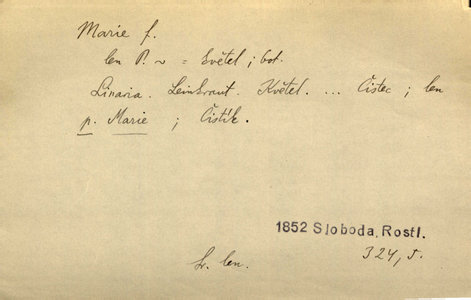 Marie f.
len P. ~ = Květel; bot.
Linaria. Leinkraut. Květel. ... Čistec; len
p. Marie ; Čistík.
1852 Sloboda, Rostl.
324, 5.
Sr. len.